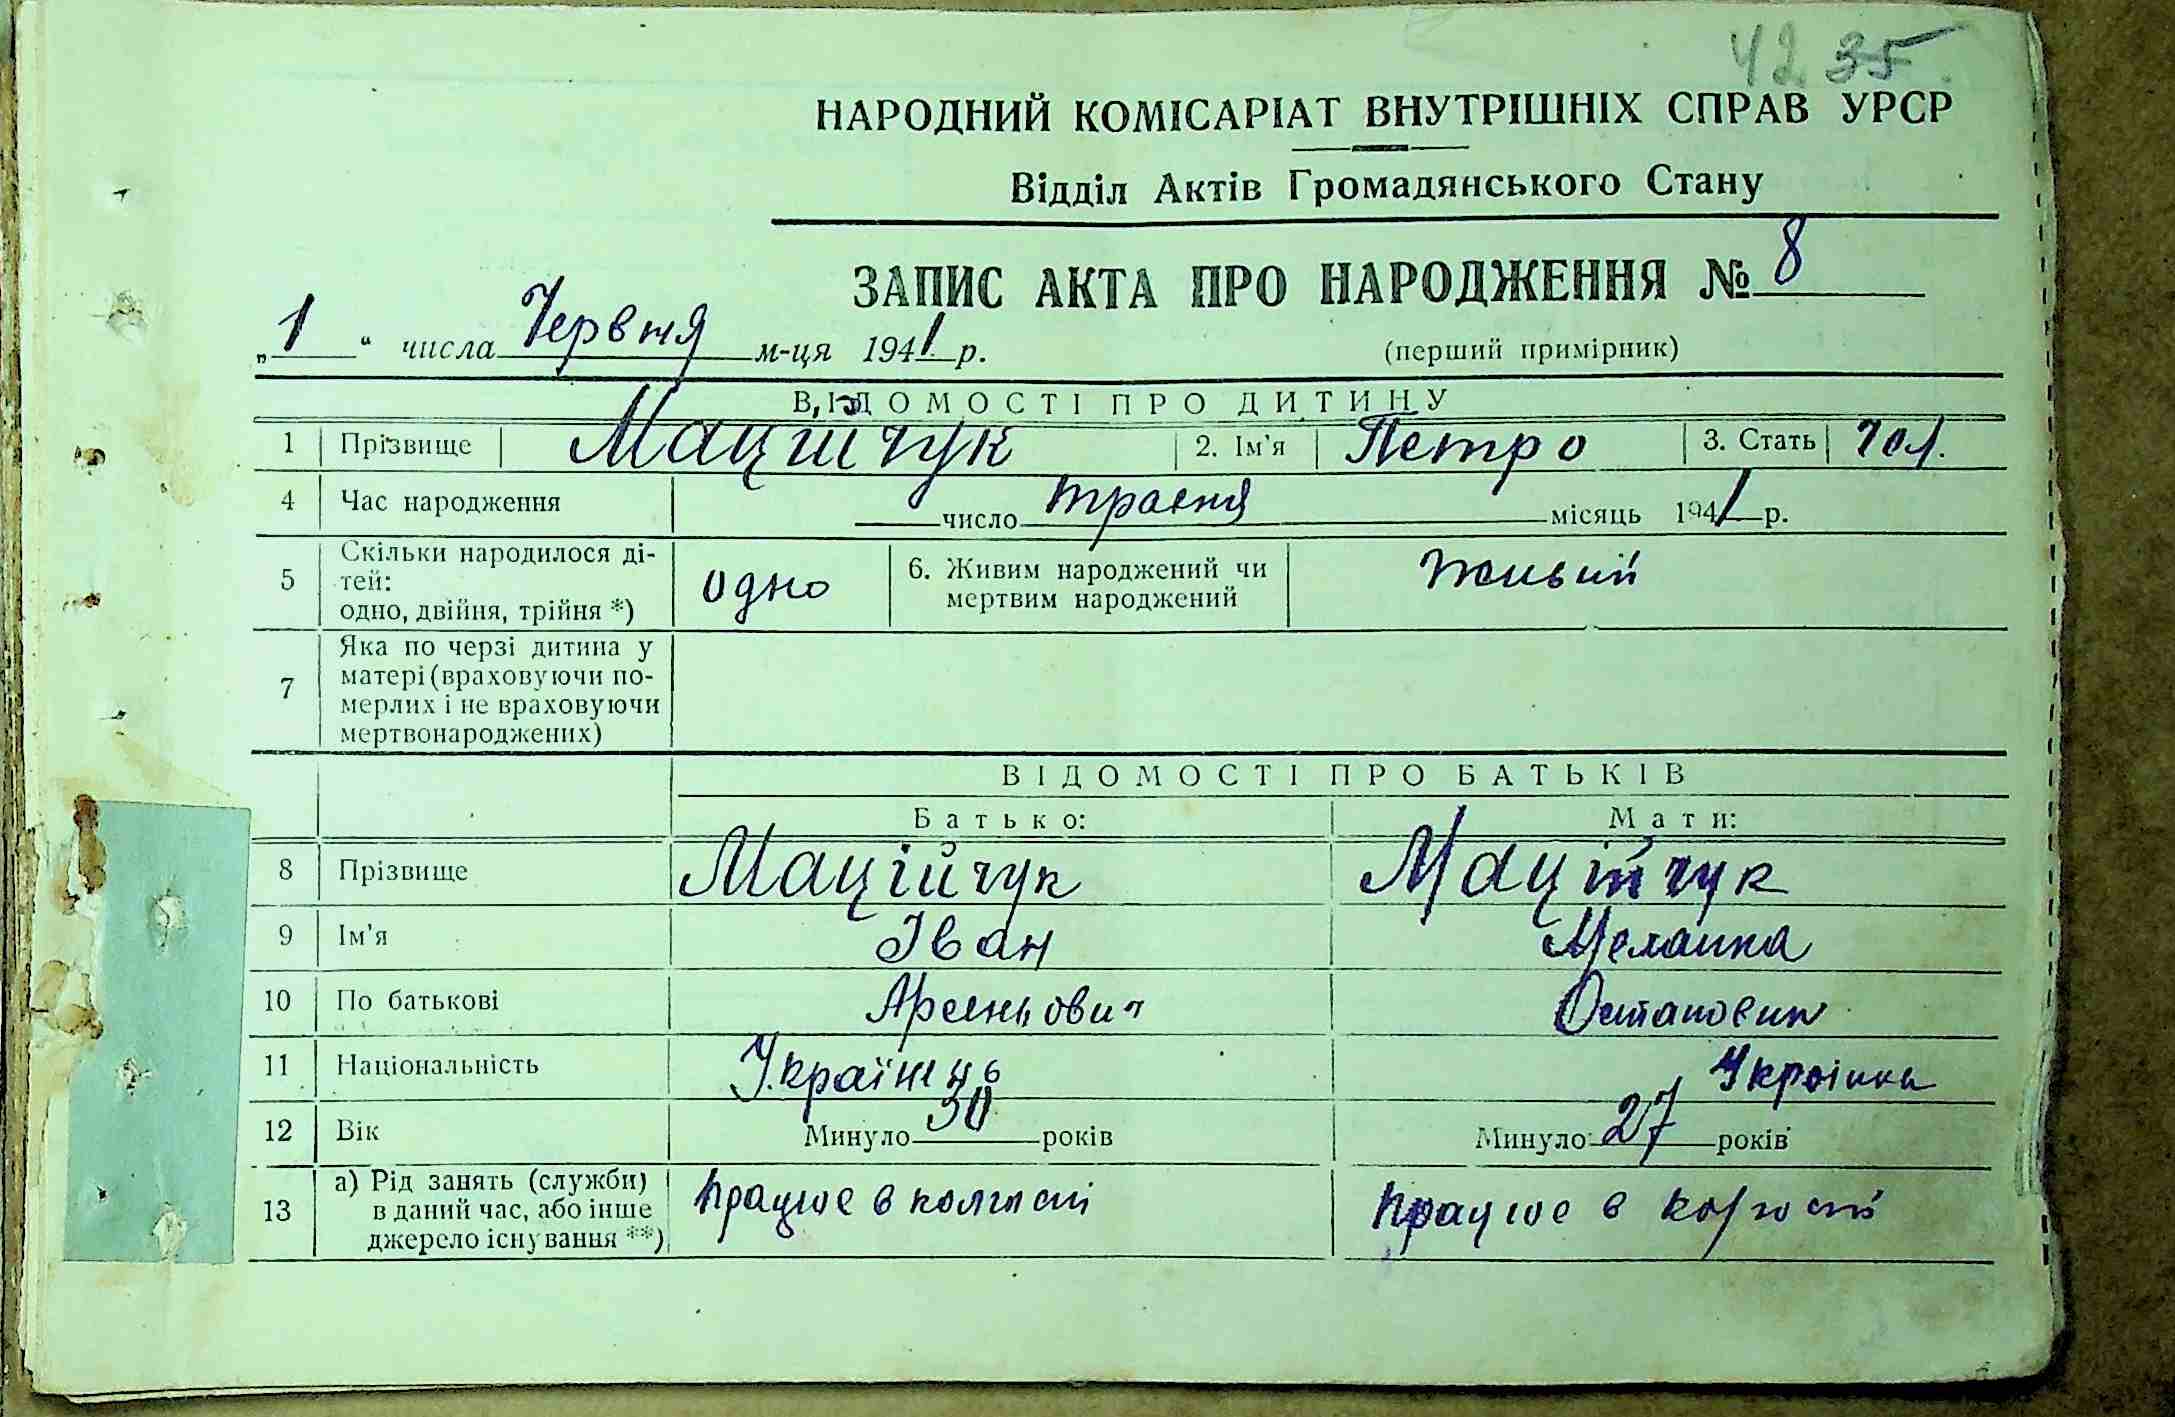 42 35
НАРОДНИЙ КОМІСАРІАТ ВНУТРІШНІХ СПРАВ УРСР
Відділ Актів Громадянського Стану
ЗАПИС АКТА ПРО НАРОДЖЕННЯ № 8
„1“ числа Червня м-ця 1941 р.
(перший примірник)
ВІДОМОСТІ ПРО ДИТИНУ
1 Прізвище Маційчук 2. Ім'я Петро 3. Стать чол.
4 Час народження число травня місяць 1941 р.
5 Скільки народилося ді-
тей:
одно, двійня, трійня *) одно 6. Живим народжений чи
мертвим народжений живий
7 Яка по черзі дитина у
матері (враховуючи по-
мерлих і не враховуючи
мертвонароджених)
ВІДОМОСТІ ПРО БАТЬКІВ
Батько: Мати:
8 Прізвище Маційчук Маційчук
9 Ім'я Іван Меланка
10 По батькові Арсеньович
11 Національність Українець Украінка
12 Вік Минуло 30 років Минуло 27 років
13 а) Рід занять (служби)
в даний час, або інше
джерело існування **) працює в колгоспі працює в колгоспі